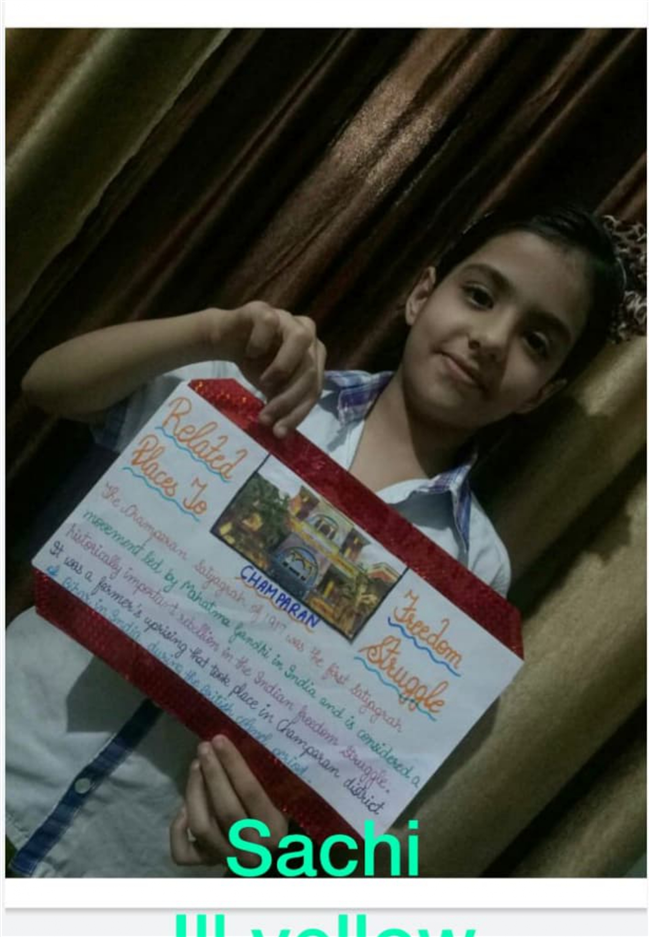 Related
Places To
Freedom
Struggle
CHAMPARAN
The Champaran Satyagrah of 1917 was the first Satyagrah
movement led by Mahatma Gandhi in India and is considered a
historically important rebellion in the Indian freedom Struggle.
It was a farmer's uprising that took place in Champaran district
of Bihar in India, during the British colonial period.
Sachi
III yellow